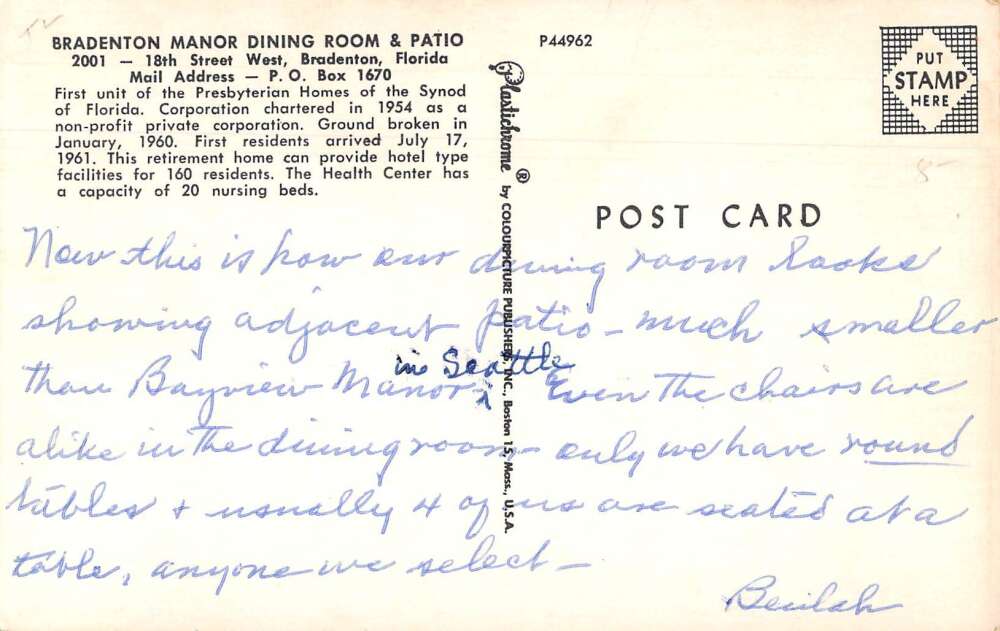 BRADENTON MANOR DINING ROOM & PATIO
2001 — 18th Street West, Bradenton, Florida
Mail Address — P. O. Box 1670
First unit of the Presbyterian Homes of the Synod
of Florida. Corporation chartered in 1954 as a
non-profit private corporation. Ground broken in
January, 1960. First residents arrived July 17,
1961. This retirement home can provide hotel type
facilities for 160 residents. The Health Center has
a capacity of 20 nursing beds.
P44962
PUT
STAMP
HERE
Plastichrome ® by COLOURPICTURE PUBLISHERS, INC., Boston 15, Mass., U.S.A.
POST CARD
Now this is how our dining room looks
showing adjacent patio - much smaller
in Seattle
than Bayview Manor. Even the chairs are
alike in the dining room - only we have round
tables + usually 4 of us are seated at a
table, anyone we select -
Beulah